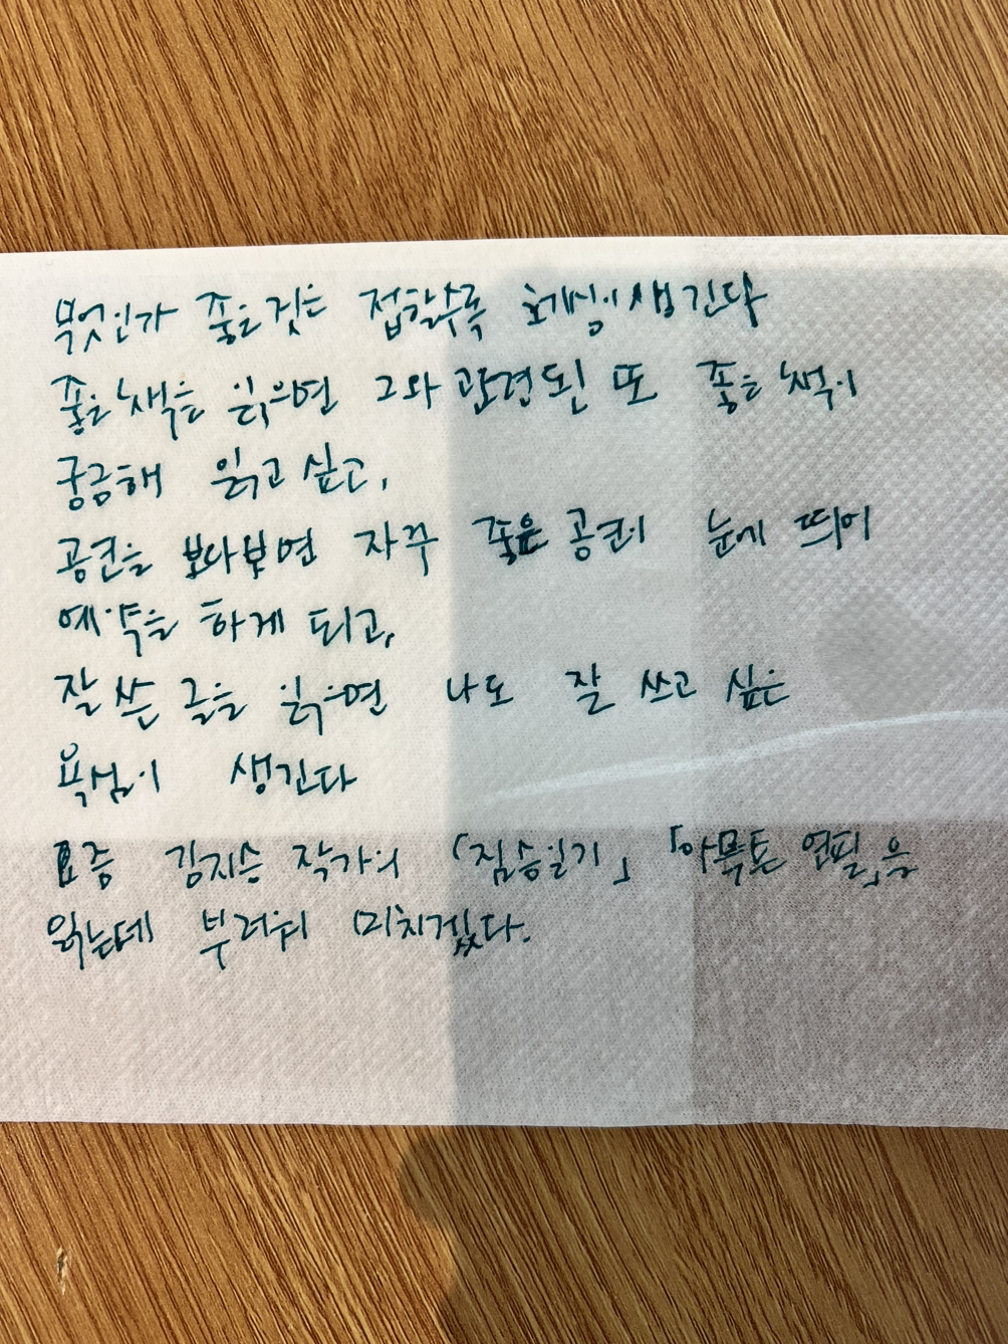 무엇인가 좋은 것은 접할수록 호기심이 생긴다
좋은 책을 읽으면 그와 관련된 또 좋은 책이
궁금해 읽고 싶고,
공연을 보다보면 자꾸 좋은 공연이 눈에 띄어
예약을 하게 되고,
잘 쓴 글을 읽으면 나도 잘 쓰고 싶은
욕심이 생긴다
요즘 김지승 작가의 「짐승일기」 「아무튼 연필」을
읽는데 부러워 미치겠다.